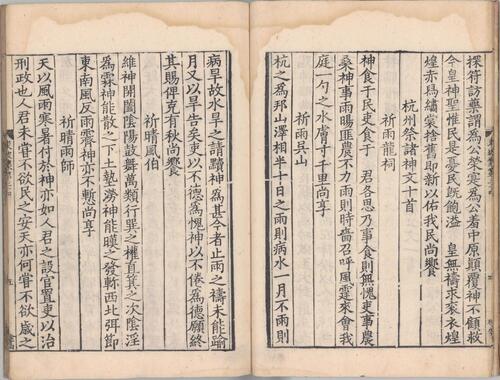 探符訪藥謂為公榮寋為公耆中原顛覆神不顧救
今皇神聖惟民是憂民既飽溢　皇無禱求衮衣煌
煌赤舄繡裳捨舊即新以佑我民尚饗
杭州祭諸神文十首
祈雨龍祠
神食于民吏食于　君各思乃事食則無愧吏事農
桑神事雨暘匪農不力雨則時嗇召呼風霆來會我
庭一勺之水膚寸千里尚享
祈雨吳山
杭之為邦山澤相半十日之雨則病水一月不雨則
病旱故水旱之請黷神為甚今者止雨之禱未能踰
月又以旱告矣吏以不德為愧神以不倦為德願終
其賜俾克有秋尚饗
祈晴風伯
維神開闔陰陽鼓舞萬類行巽之權直箕之次陰淫
為霖神能散之下土墊溽神能暵之發軫西北弭節
東南風反雨霽神亦不慙尚享
祈晴雨師
天以風雨寒暑付於神亦如人君之設官置吏以治
刑政也人君未嘗不欲民之安天亦何嘗不欲歲之